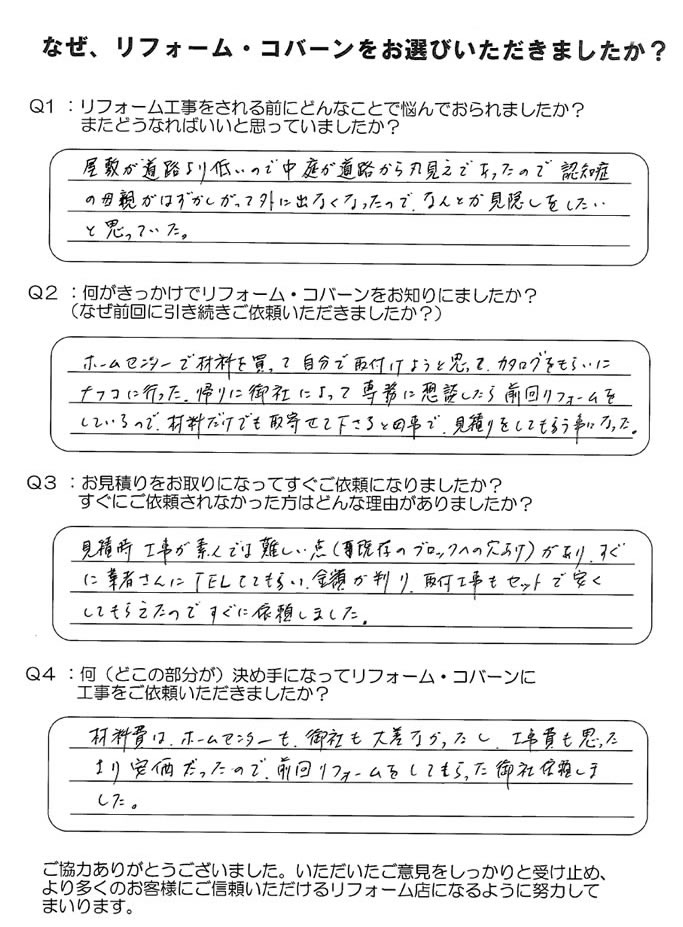 なぜ、リフォーム・コバーンをお選びいただきましたか？
Q1 ：リフォーム工事をされる前にどんなことで悩んでおられましたか？
またどうなればいいと思っていましたか？
屋敷が道路より低いので中庭が道路から丸見えであったので 認知症
の母親がはずかしがって外に出なくなったので、なんとか見隠しをしたい
と思っていた。
Q2 ：何がきっかけでリフォーム・コバーンをお知りにましたか？
（なぜ前回に引き続きご依頼いただきましたか？）
ホームセンターで材料を買って自分で取付けようと思って、カタログをもらいに
ナフコに行った。帰りに御社によって専務に想談したら前回リフォームを
しているので、材料だけでも取寄せて下さるとの事で、見積りをしてもらう事になった。
Q3 ：お見積りをお取りになってすぐご依頼になりましたか？
すぐにご依頼されなかった方はどんな理由がありましたか？
見積時 工事が素人では難しい点(既存のブロックへの穴あけ)があり、すぐ
に業者さんにTELしてもらい、金額が判り、取付工事もセットで安く
してもらえたのですぐに依頼しました。
Q4 ：何（どこの部分が）決め手になってリフォーム・コバーンに
工事をご依頼いただきましたか？
材料費は、ホームセンターも、御社も大差なかったし、工事費も思った
より安価だったので、前回リフォームをしてもらった御社依頼しま
した。
ご協力ありがとうございました。いただいたご意見をしっかりと受け止め、
より多くのお客様にご信頼いただけるリフォーム店になるように努力して
まいります。